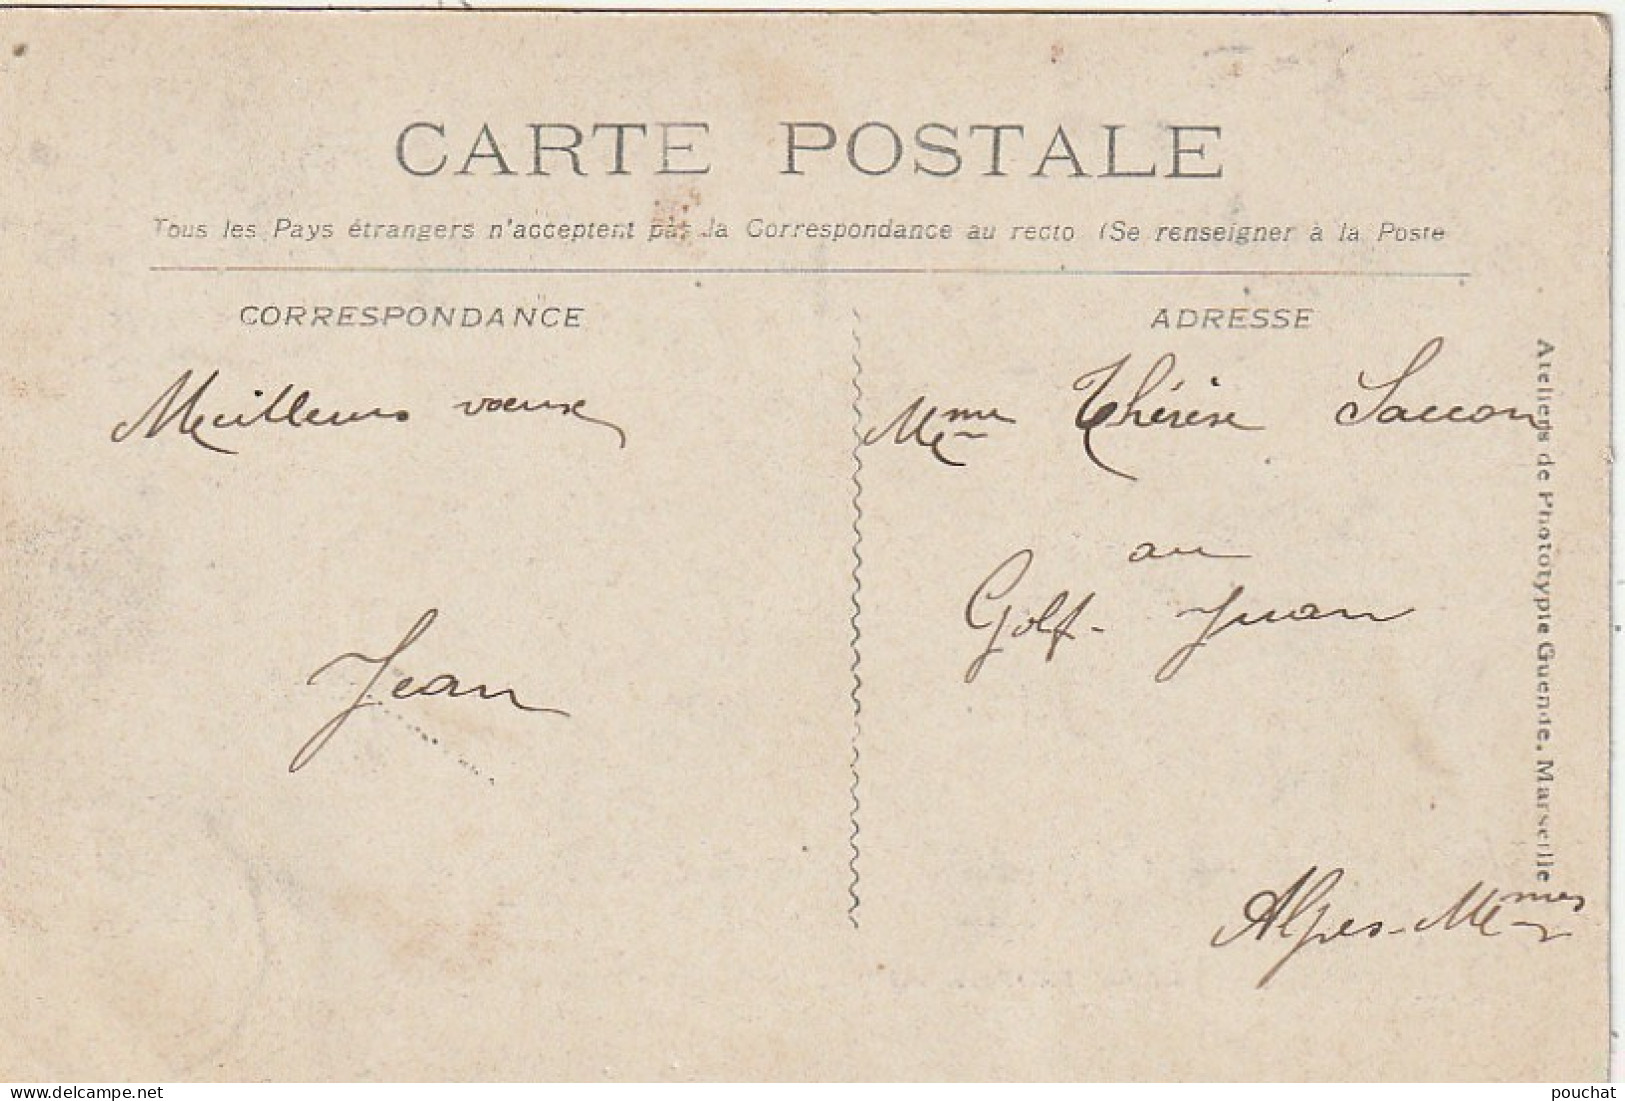 CARTE POSTALE
Tous les Pays étrangers n'acceptent pas la Correspondance au recto (Se renseigner à la Poste
CORRESPONDANCE
Meilleurs vœux
Jean
ADRESSE
Mme Thérèse Saccon
au
Golf-Juan
Alpes-Mmes
Ateliers de Phototypie Guende, Marseille
www.delcampe.net
pouchat